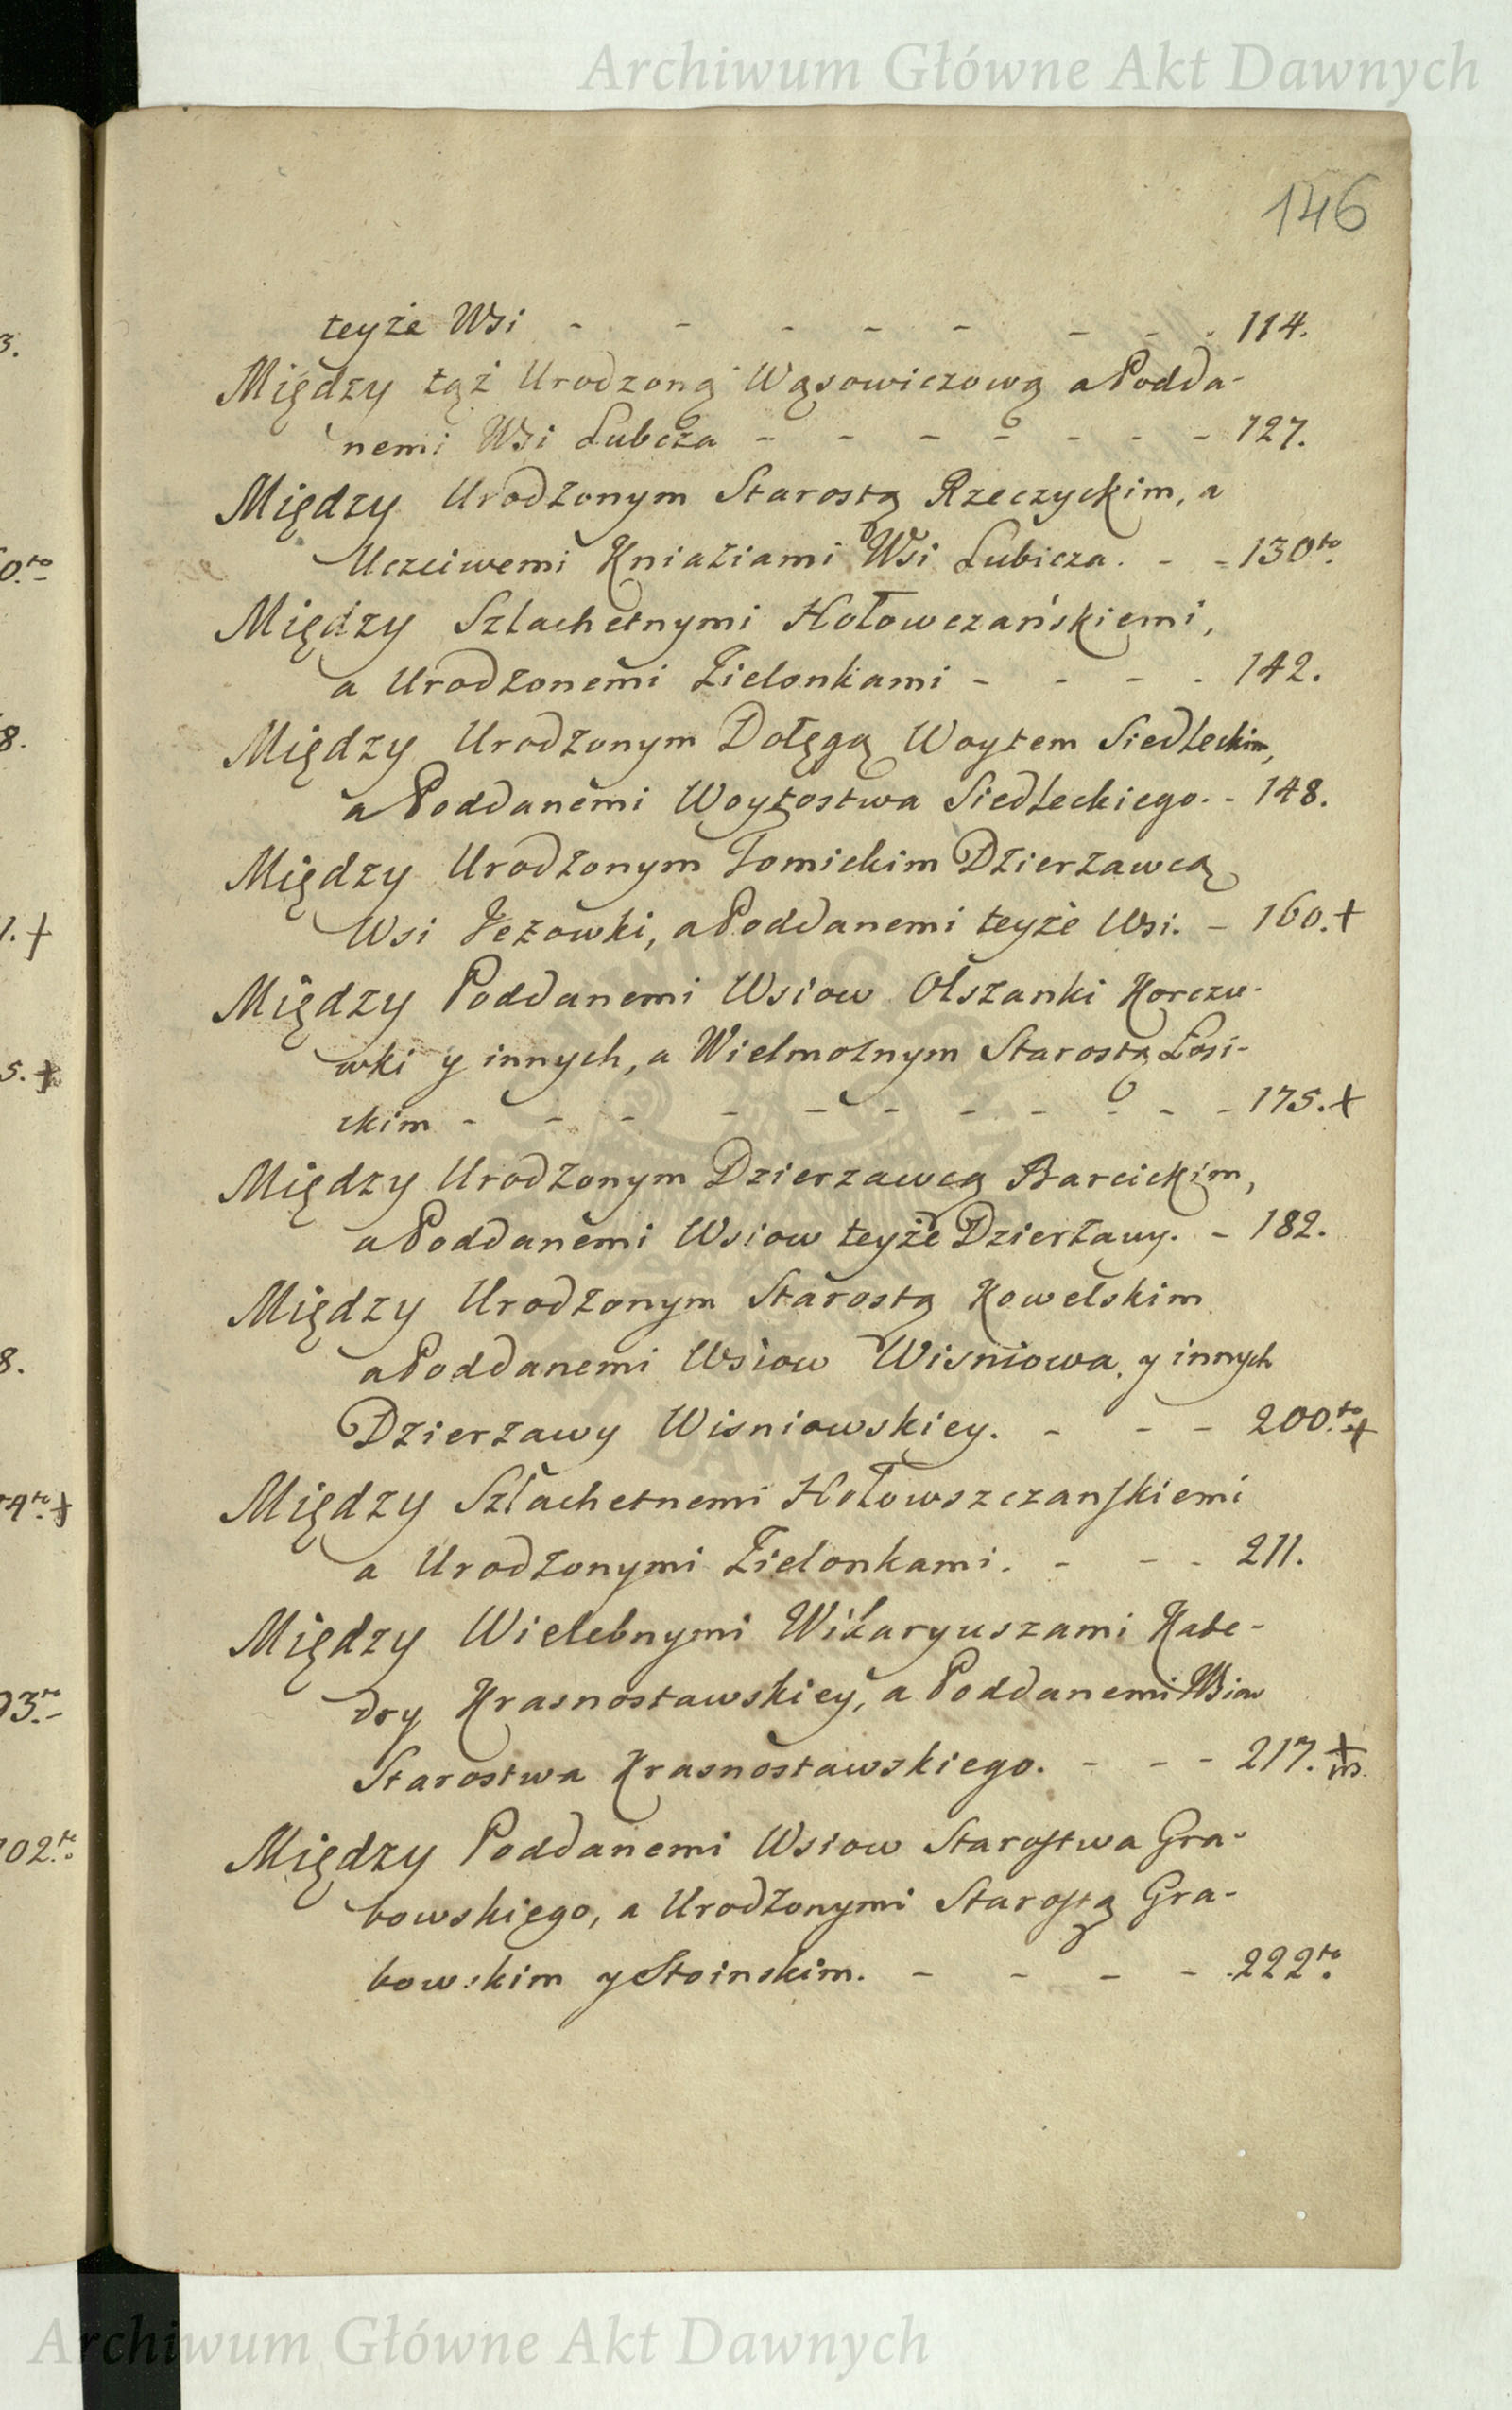 Archiwum Główne Akt Dawnych
146
teyże Wsi - - - - - - - - 114.
Między tąż Urodzoną Wąsowiczową a Podda-
nemi Wsi Lubcza - - - - - - - 127.
Między Urodzonym Starostą Rzeczyckim, a
Uczciwemi Kniaziami Wsi Lubicza. - - 130to.
Między Szlachetnymi Hołowczańskiemi,
a Urodzonemi Zielonkami - - - - 142.
Między Urodzonym Dołęgą Woytem Siedleckim,
a Poddanemi Woytostwa Siedleckiego. - 148.
Między Urodzonym Tomickim Dzierzawcą
Wsi Jeżowki, a Poddanemi teyże Wsi. - 160.+
Między Poddanemi Wsiow Olszanki Korczu-
wki y innych, a Wielmożnym Starostą Łosi-
ckim - - - - - - - - - - - 175.+
Między Urodzonym Dzierzawcą Barcickim,
a Poddanemi Wsiow teyże Dzierżawy. - 182.
Między Urodzonym Starostą Kowelskim
a Poddanemi Wsiow Wisniowa y innych
Dzierzawy Wisniowskiey. - - - 200to.+
Między Szlachetnemi Hołowszczanskiemi
a Urodzonymi Zielonkami. - - - 211.
Między Wielebnymi Wikaryuszami Kate-
dry Krasnostawskiey, a Poddanemi Wsiow
Starostwa Krasnostawskiego. - - - 217.+
Między Poddanemi Wsiow Starostwa Gra-
bowskiego, a Urodzonymi Starostą Gra-
bowskim y Stoinskim. - - - - 222to.
Archiwum Główne Akt Dawnych